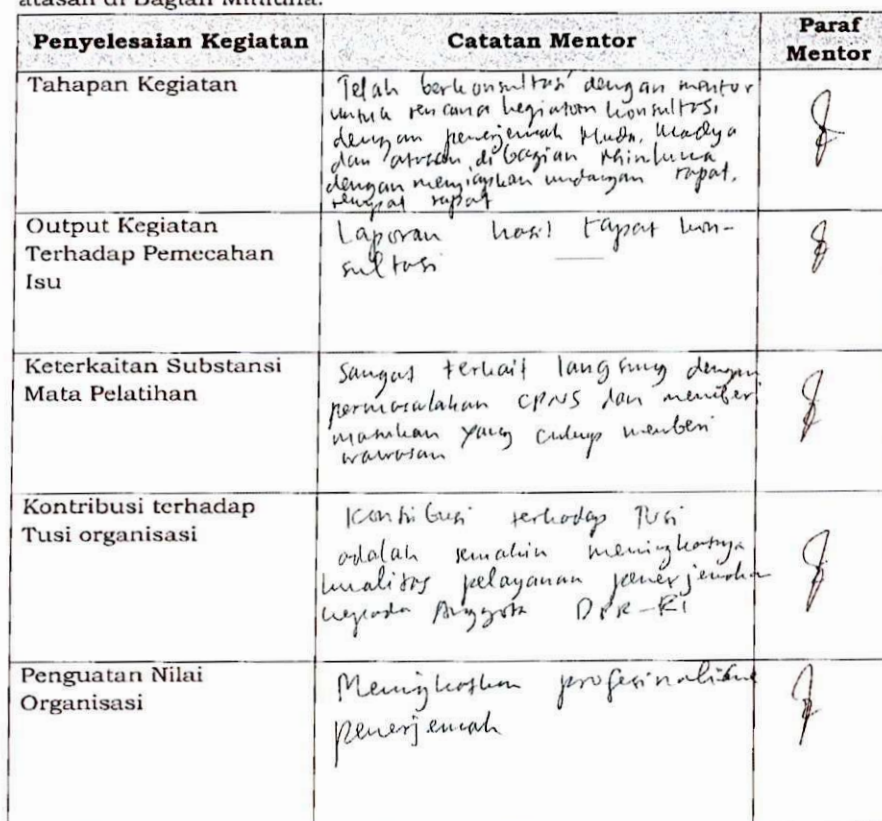 atasan di Bagian Minkuna.
Penyelesaian Kegiatan
Catatan Mentor
Paraf Mentor
Tahapan Kegiatan
Telah berkonsultasi dengan mentor
untuk rencana kegiatan konsultasi
dengan penerjemah Muda, Madya
dan atasan di bagian Minkuna
dengan menyiapkan undangan rapat,
tempat rapat
Output Kegiatan
Terhadap Pemecahan
Isu
Laporan hasil rapat kon-
sultasi
Keterkaitan Substansi
Mata Pelatihan
Sangat terkait langsung dengan
permasalahan CPNS dan memberi
masukan yang cukup memberi
wawasan
Kontribusi terhadap
Tusi organisasi
Kontribusi terhadap Tusi
adalah semakin meningkatnya
kualitas pelayanan penerjemah
kepada Anggota DPR-RI
Penguatan Nilai
Organisasi
Meningkatkan
penerjemah